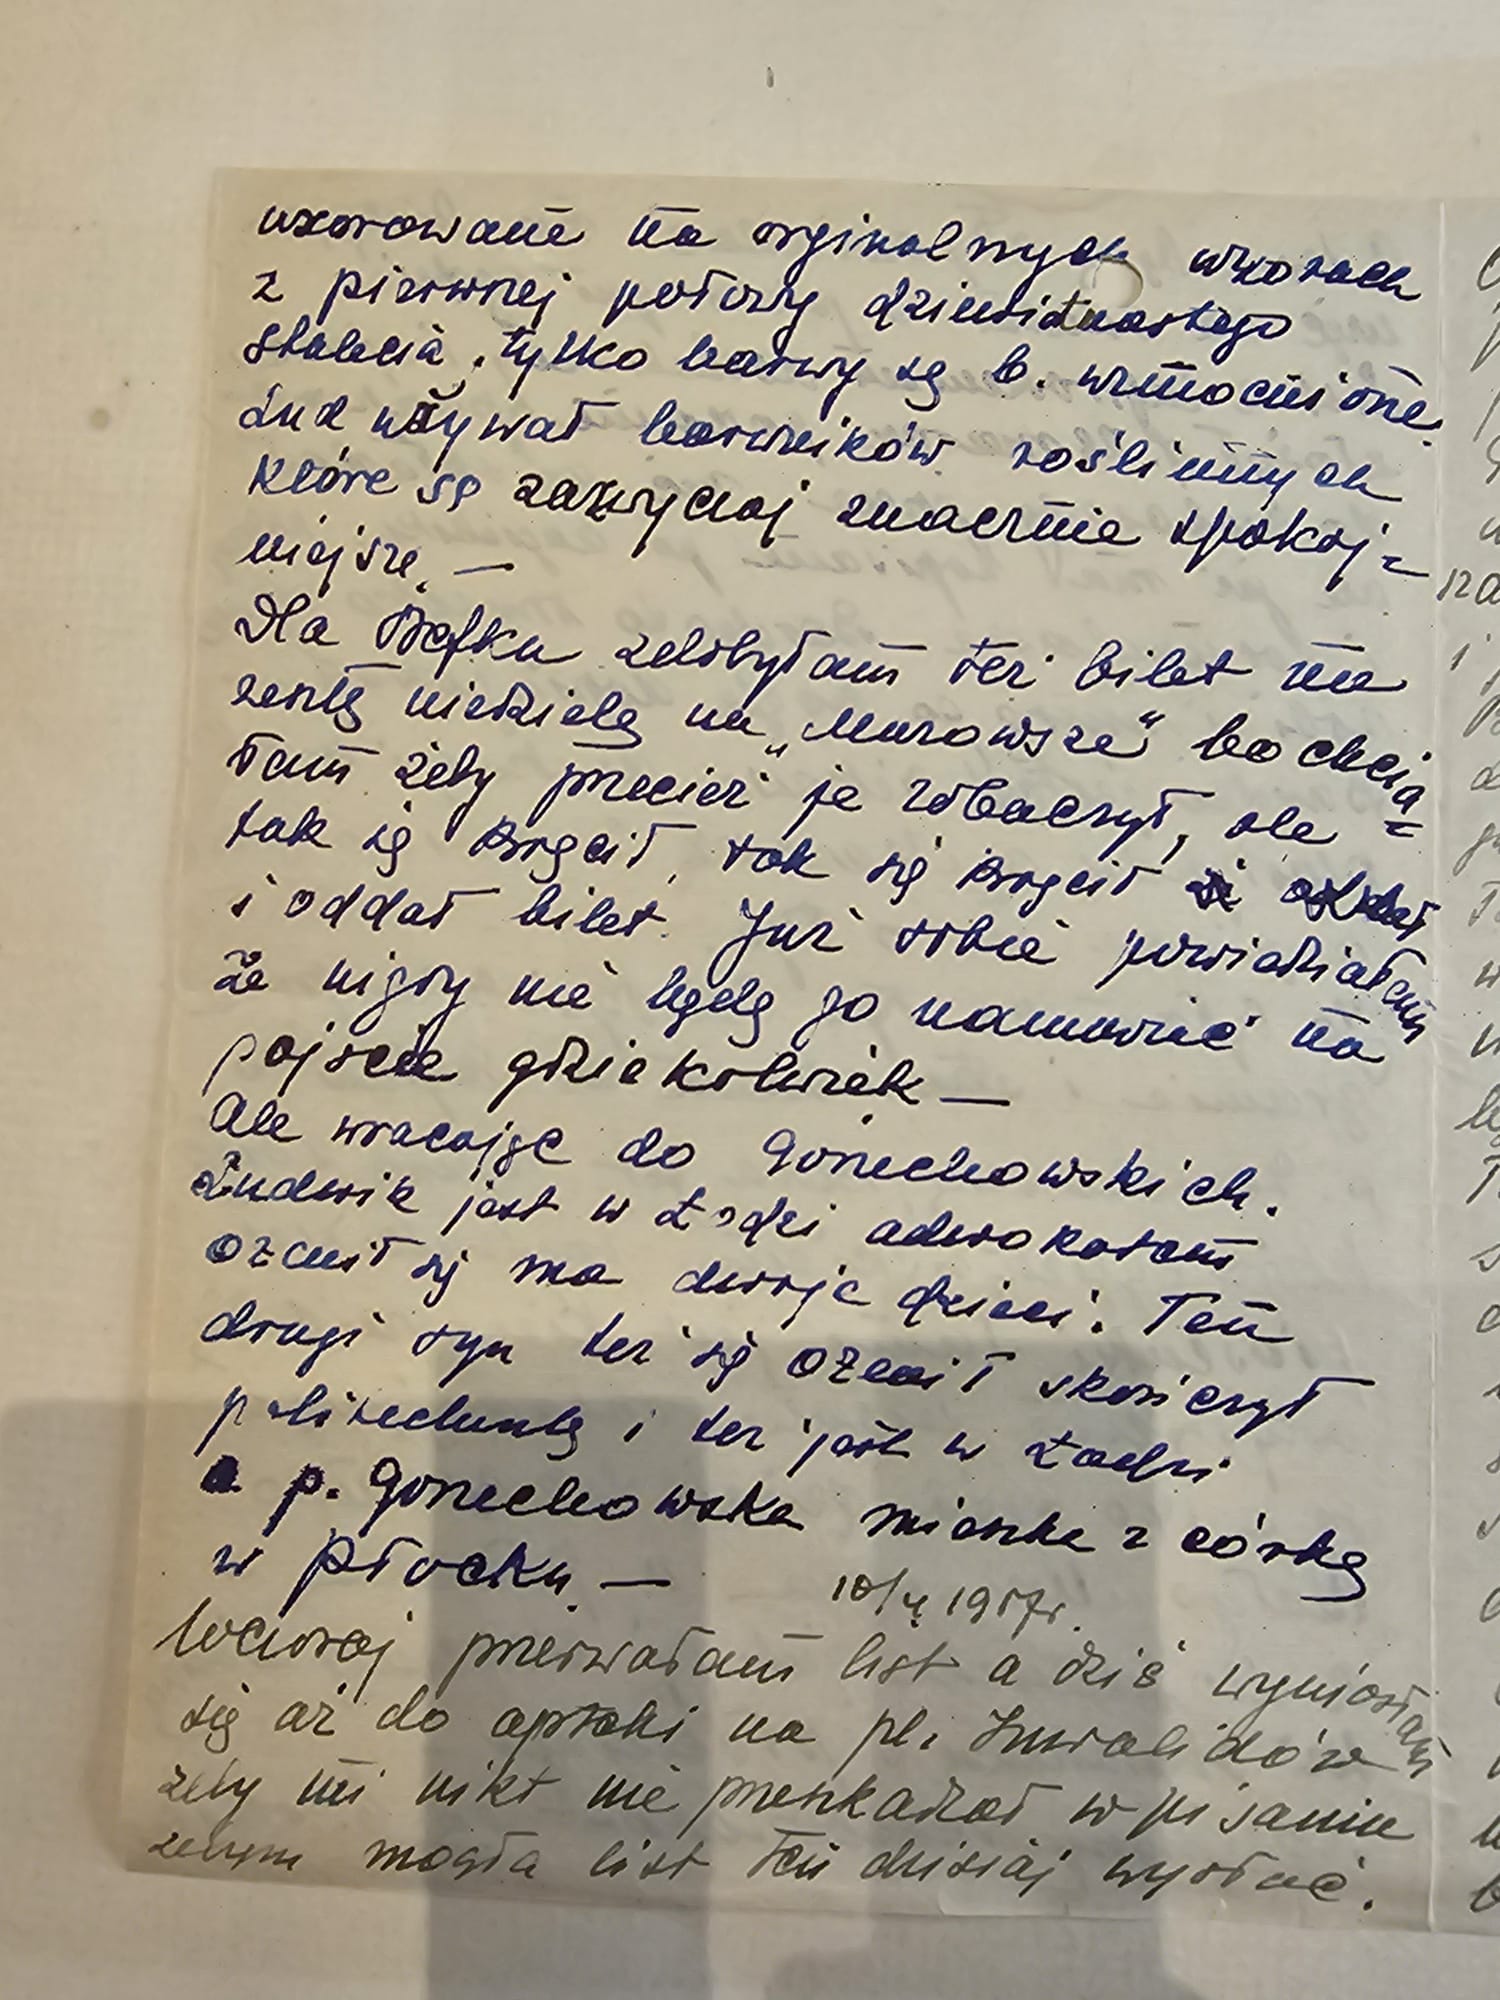 wzorowane na orginalnych wzorach
z pierwszej połowy dziewiętnastego
stulecia, tylko barwy są b. wzmocnione.
Lud używał barwników roślinnych
które są zazwyczaj znacznie spokoj=
niejsze. —
Dla Befku zdobyłam też bilet na
zeszłą niedzielę na „Mazowsze" bo chcia=
łam żeby przecież je zobaczył, ale
tak się kręcił, tak się kręcił
i oddał bilet. Już sobie powiedziałam
że nigdy nie będę go namawiać na
pójście gdziekolwiek —
Ale wracając do Goriechowskich.
Ludwik jest w Łodzi adwokatem
ożenił się ma dwoje dzieci. Ten
drugi syn też się ożenił skończył
politechnikę i też jest w Łodzi
a p. Goriechowska mieszka z córką
w Płocku. —
10/V 1957r.
Wczoraj przerwałam list a dziś wyniosłam
się aż do apteki na pl. Inwalidów
żeby mi nikt nie przeszkadzał w pisaniu
żebym mogła list ten dzisiaj wysłać.